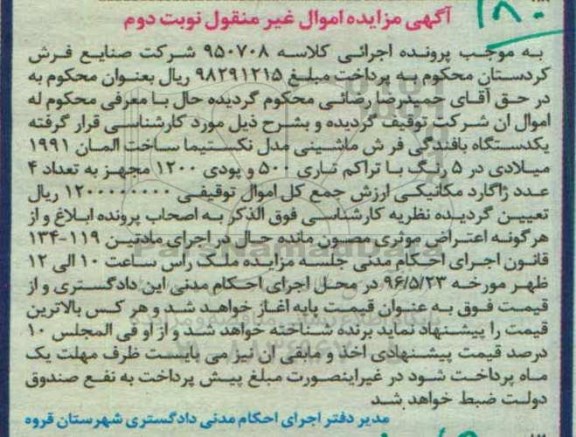 ۱۸۰
آگهی مزایده اموال غیر منقول نوبت دوم
به موجب پرونده اجرائی کلاسه ۹۵۰۷۰۸ شرکت صنایع فرش
کردستان محکوم به پرداخت مبلغ ۹۸۲۹۱۲۱۵ ریال بعنوان محکوم به
در حق آقای حمیدرضا رضائی محکوم گردیده حال با معرفی محکوم له
اموال ان شرکت توقیف گردیده و بشرح ذیل مورد کارشناسی قرار گرفته
یکدستگاه بافندگی فرش ماشینی مدل نکستیما ساخت المان ۱۹۹۱
میلادی در ۵ رنگ با تراکم تاری ۵۰۰ و پودی ۱۲۰۰ مجهز به تعداد ۴
عدد ژاکارد مکانیکی ارزش جمع کل اموال توقیفی ۱۲۰۰۰۰۰۰۰۰ ریال
تعیین گردیده نظریه کارشناسی فوق الذکر به اصحاب پرونده ابلاغ و از
هرگونه اعتراض موثری مصون مانده حال در اجرای مادتین ۱۱۹-۱۳۴
قانون اجرای احکام مدنی جلسه مزایده ملک راس ساعت ۱۰ الی ۱۲
ظهر مورخه ۹۶/۵/۲۳ در محل اجرای احکام مدنی این دادگستری و از
قیمت فوق به عنوان قیمت پایه اغاز خواهد شد و هر کس بالاترین
قیمت را پیشنهاد نماید برنده شناخته خواهد شد و از او فی المجلس ۱۰
درصد قیمت پیشنهادی اخذ و مابقی ان نیز می بایست ظرف مهلت یک
ماه پرداخت شود در غیراینصورت مبلغ پیش پرداخت به نفع صندوق
دولت ضبط خواهد شد
مدیر دفتر اجرای احکام مدنی دادگستری شهرستان قروه